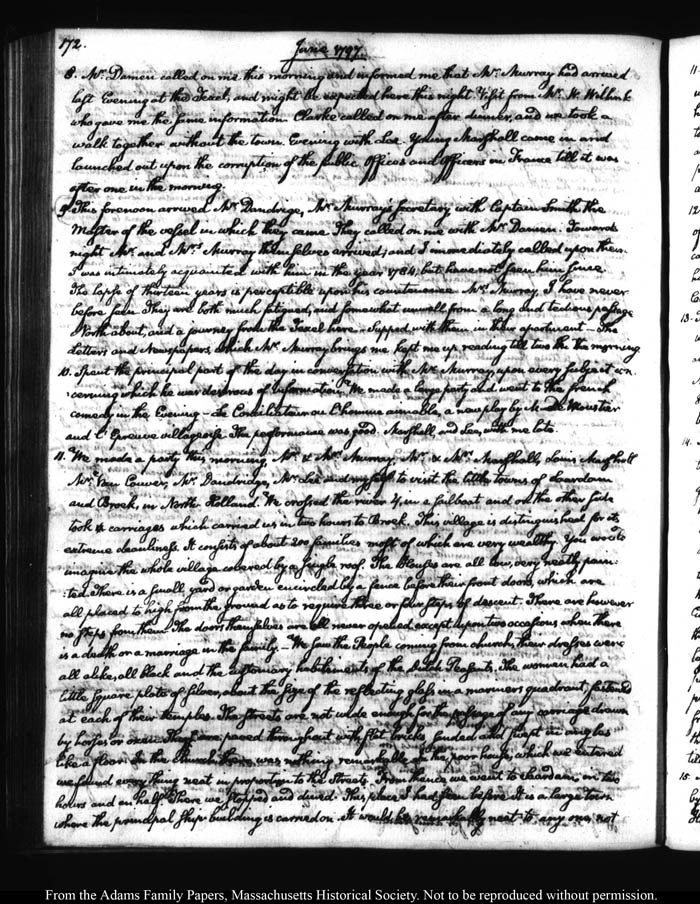 172.
June 1797.
8. Mr. Damen called on me this morning and informed me that Mr. Murray had arrived
last Evening at the Texel, and might be expected here this night. Visit from Mr. W. Willink
who gave me the same information. Clarke called on me after dinner, and we took a
walk together without the town. Evening with Lee. Young Marshall came in and
launched out upon the corruption of the public Offices and Officers in France till it was
after one in the morning.
9. This forenoon arrived Mr. Dandridge, Mr. Murray's Secretary with Captain Smith the
Master of the vessel in which they came. They called on me with Mr. Damen. Towards
night Mr. and Mrs. Murray themselves arrived; and I immediately called upon them.
I was intimately acquainted with him in the year 1784, but have not seen him since.
The lapse of thirteen years is perceptible upon his countenance. Mrs. Murray, I have never
before seen. They are both much fatigued, and somewhat unwell from a long and tedious passage
North about, and a journey from the Texel here. Supped with them in their apartment. The
Letters and Newspapers, which Mr. Murray brings me kept me up reading till two in the morning
10. Spent the principal part of the day in conversation with Mr. Murray, upon every subject con-
cerning which he was desirous of information. We made a large party and went to the French
comedy in the Evening. Le Conciliateur ou L'homme aimable, a new play by M. De Moustier
and L'Epreuve villageoise. The performance was good. Marshall and Lee, with me late.
11. We made a party this morning. Mr. & Mrs. Murray, Mr. & Mrs. Marshall, Louis Marshall
Mr. Van Couver, Mr. Dandridge, Mr. Lee and myself to visit the little towns of Saardam
and Broek, in North Holland. We crossed the river Y, in a sailboat and on the other side
took carriages which carried us in two hours to Broek. This village is distinguished for its
extreme cleanliness. It consists of about 200 families most of which are very wealthy. You would
imagine the whole village covered by a single roof. The Houses are all low, very neatly pain-
ted. There is a small yard or garden encircled by a fence before their front doors, which are
all placed so high from the ground as to require three or four steps of descent. There are however
no steps from them. The doors themselves are all never opened except upon two occasions when there
is a death or a marriage in the family. We saw the People coming from church, their dresses were
all alike, all black and the customary habiliments of the Dutch Peasants. The women had a
little square plate of silver, about the size of the reflecting glass in a mariners quadrant, fastened
at each of their temples. The streets are not wide enough for the passage of any carriage drawn
by horses or oxen. They are paved throughout with flat bricks, sanded and swept in angles
like a floor. In the Church there was nothing remarkable. In the poor house, which we entered
we found every thing neat in proportion to the Streets. From thence we went to Saardam, in two
hours and an half. There we stopped and dined. This place I had seen before. It is a large town
where the principal ship building is carried on. It would be remarkably neat to any one, not
From the Adams Family Papers, Massachusetts Historical Society. Not to be reproduced without permission.